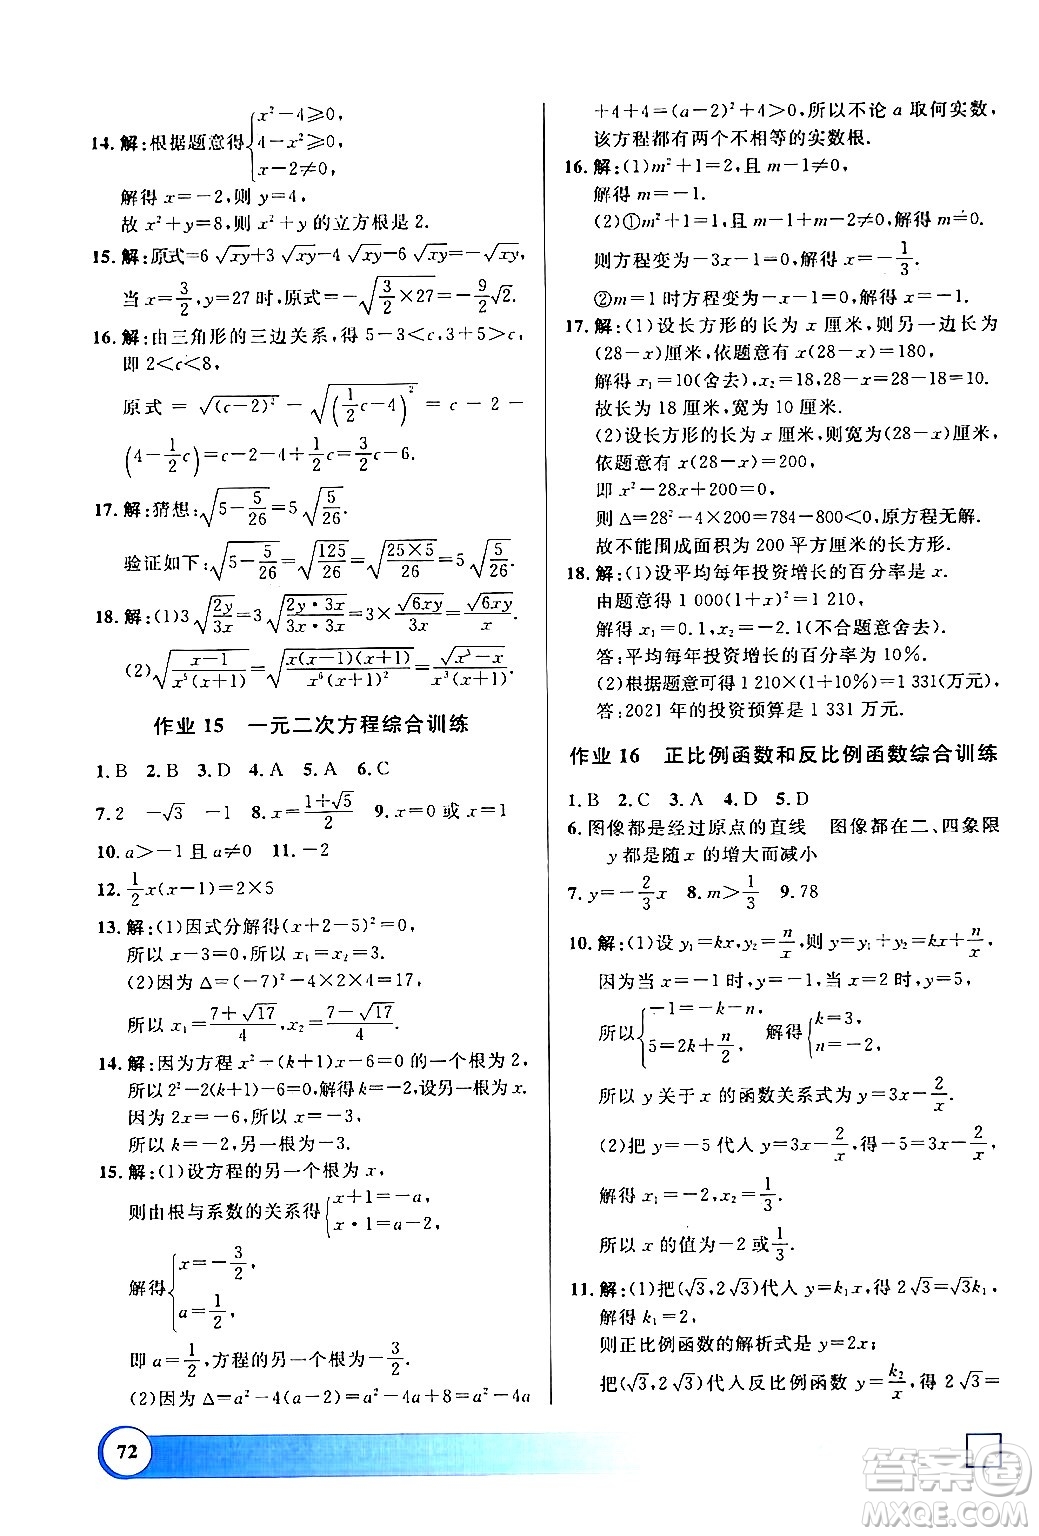 14. 解:根据题意得{x²-4≥0, 4-x²≥0, x-2≠0,
解得 x=-2,则 y=4,
故 x²+y=8,则 x²+y 的立方根是 2.
15. 解:原式=6√xy+3√xy-4√xy-6√xy=-√xy,
当 x=3/2,y=27 时,原式=-√(3/2×27)=-9/2√2.
16. 解:由三角形的三边关系,得 5-3<c,3+5>c,
即 2<c<8,
原式 = √(c-2)² - √(1/2c-4)² = c - 2 -
(4-1/2c)=c-2-4+1/2c=3/2c-6.
17. 解:猜想:√(5-5/26)=5√(5/26)
验证如下:√(5-5/26)=√(125/26)=√(25×5/26)=5√(5/26).
18. 解:(1)3√(2y/3x)=3√(2y·3x/3x·3x)=3×√6xy/3x=√6xy/x.
(2)√(x-1/x⁵(x+1))=√(x(x-1)(x+1)/x⁶(x+1)²)=√(x³-x)/x³(x+1).
作业 15 一元二次方程综合训练
1. B 2. B 3. D 4. A 5. A 6. C
7. 2 -√3 -1 8. x=(1±√5)/2 9. x=0 或 x=1
10. a>-1 且 a≠0 11. -2
12. 1/2x(x-1)=2×5
13. 解:(1)因式分解得(x+2-5)²=0,
所以 x-3=0,所以 x₁=x₂=3.
(2)因为 △=(-7)²-4×2×4=17,
所以 x₁=(7+√17)/4,x₂=(7-√17)/4.
14. 解:因为方程 x²-(k+1)x-6=0 的一个根为 2,
所以 2²-2(k+1)-6=0,解得 k=-2,设另一根为 x,
因为 2x=-6,所以 x=-3,
所以 k=-2,另一根为-3.
15. 解:(1)设方程的另一个根为 x,
则由根与系数的关系得{x+1=-a, x·1=a-2,
解得{x=-3/2, a=1/2,
即 a=1/2,方程的另一个根为-3/2.
(2)因为 △=a²-4(a-2)=a²-4a+8=a²-4a
+4+4=(a-2)²+4>0,所以不论 a 取何实数,
该方程都有两个不相等的实数根.
16. 解:(1)m²+1=2,且 m-1≠0,
解得 m=-1.
(2)①m²+1=1,且 m-1+m-2≠0,解得 m=0.
则方程变为-3x-1=0,解得 x=-1/3.
②m=1 时方程变为-x-1=0,解得 x=-1.
17. 解:(1)设长方形的长为 x 厘米,则另一边长为
(28-x)厘米,依题意有 x(28-x)=180,
解得 x₁=10(舍去),x₂=18,28-x=28-18=10.
故长为 18 厘米,宽为 10 厘米.
(2)设长方形的长为 x 厘米,则宽为(28-x)厘米,
依题意有 x(28-x)=200,
即 x²-28x+200=0,
则 △=28²-4×200=784-800<0,原方程无解.
故不能围成面积为 200 平方厘米的长方形.
18. 解:(1)设平均每年投资增长的百分率是 x.
由题意得 1 000(1+x)²=1 210,
解得 x₁=0.1,x₂=-2.1(不合题意舍去).
答:平均每年投资增长的百分率为 10%.
(2)根据题意可得 1 210×(1+x)=1 331(万元),
答:2021 年的投资预算是 1 331 万元.
作业 16 正比例函数和反比例函数综合训练
1. B 2. C 3. A 4. D 5. D
6. 图像都是经过原点的直线 图像都在二、四象限
y 都是随 x 的增大而减小
7. y=-2/3x 8. m>1/3 9. 78
10. 解:(1)设 y₁=kx,y₂=n/x,则 y=y₁+y₂=kx+n/x,
因为当 x=-1 时,y=-1;当 x=2 时,y=5,
所以{-1=-k-n, 5=2k+n/2, 解得{k=3, n=-2,
所以 y 关于 x 的函数关系式为 y=3x-2/x.
(2)把 y=-5 代人 y=3x-2/x,得-5=3x-2/x,
解得 x₁=-2,x₂=1/3.
所以 x 的值为-2 或1/3.
11. 解:(1)把(√3,2√3)代人 y=k₁x,得 2√3=√3k₁,
解得 k₁=2,
则正比例函数的解析式是 y=2x;
把(√3,2√3)代人反比例函数 y=k₂/x,得 2√3=
72
答案圈
MXQE.COM